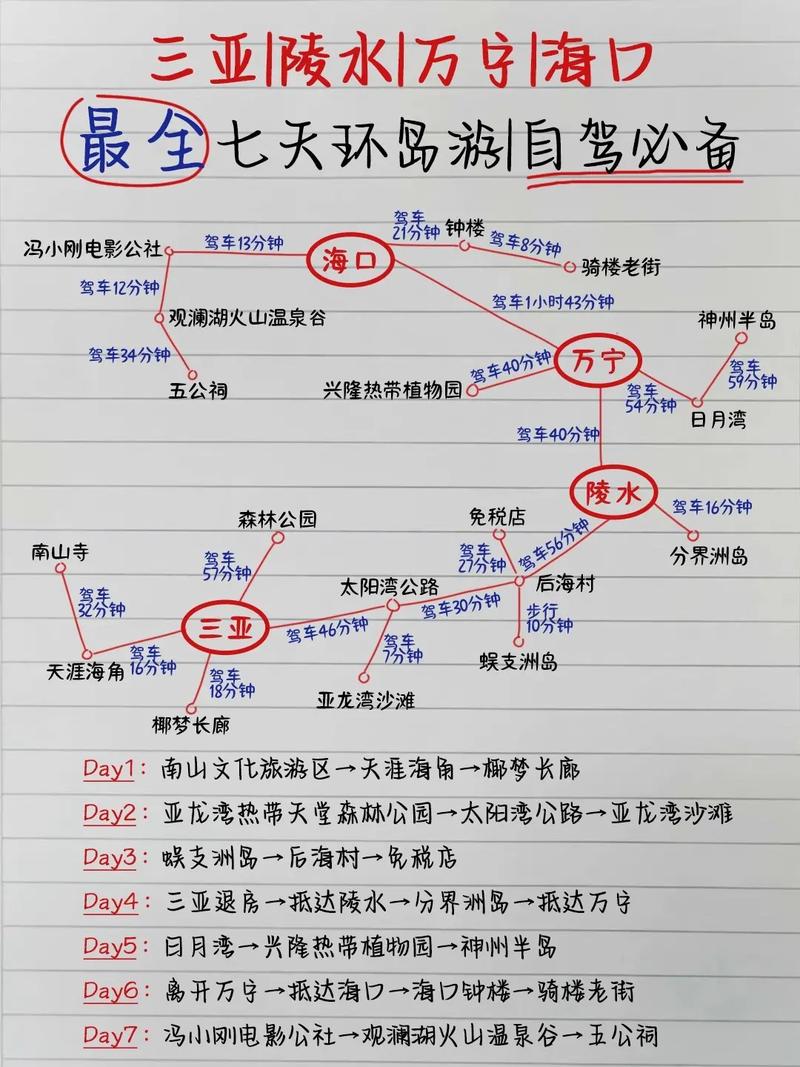 三亚|陵水|万宁|海口
最全七天环岛游|自驾必备
冯小刚电影公社
驾车13分钟
海口
驾车
21分钟
钟楼
驾车8分钟
骑楼老街
驾车12分钟
观澜湖火山温泉谷
驾车34分钟
五公祠
驾车1小时43分钟
神州半岛
万宁
兴隆热带植物园
驾车40分钟
驾车
54分钟
驾车
59分钟
日月湾
驾车40分钟
陵水
驾车16分钟
分界洲岛
森林公园
免税店
南山寺
驾车
57分钟
驾车
27分钟
驾车56分钟
后海村
太阳湾公路
驾车
32分钟
三亚
驾车46分钟
驾车30分钟
步行
10分钟
天涯海角
驾车
16分钟
驾车
18分钟
驾车
7分钟
蜈支洲岛
亚龙湾沙滩
椰梦长廊
Day1：南山文化旅游区→天涯海角→椰梦长廊
Day2：亚龙湾热带天堂森林公园→太阳湾公路→亚龙湾沙滩
Day3：蜈支洲岛→后海村→免税店
Day4：三亚退房→抵达陵水→分界洲岛→抵达万宁
Day5：日月湾→兴隆热带植物园→神州半岛
Day6：离开万宁→抵达海口→海口钟楼→骑楼老街
Day7：冯小刚电影公社→观澜湖火山温泉谷→五公祠